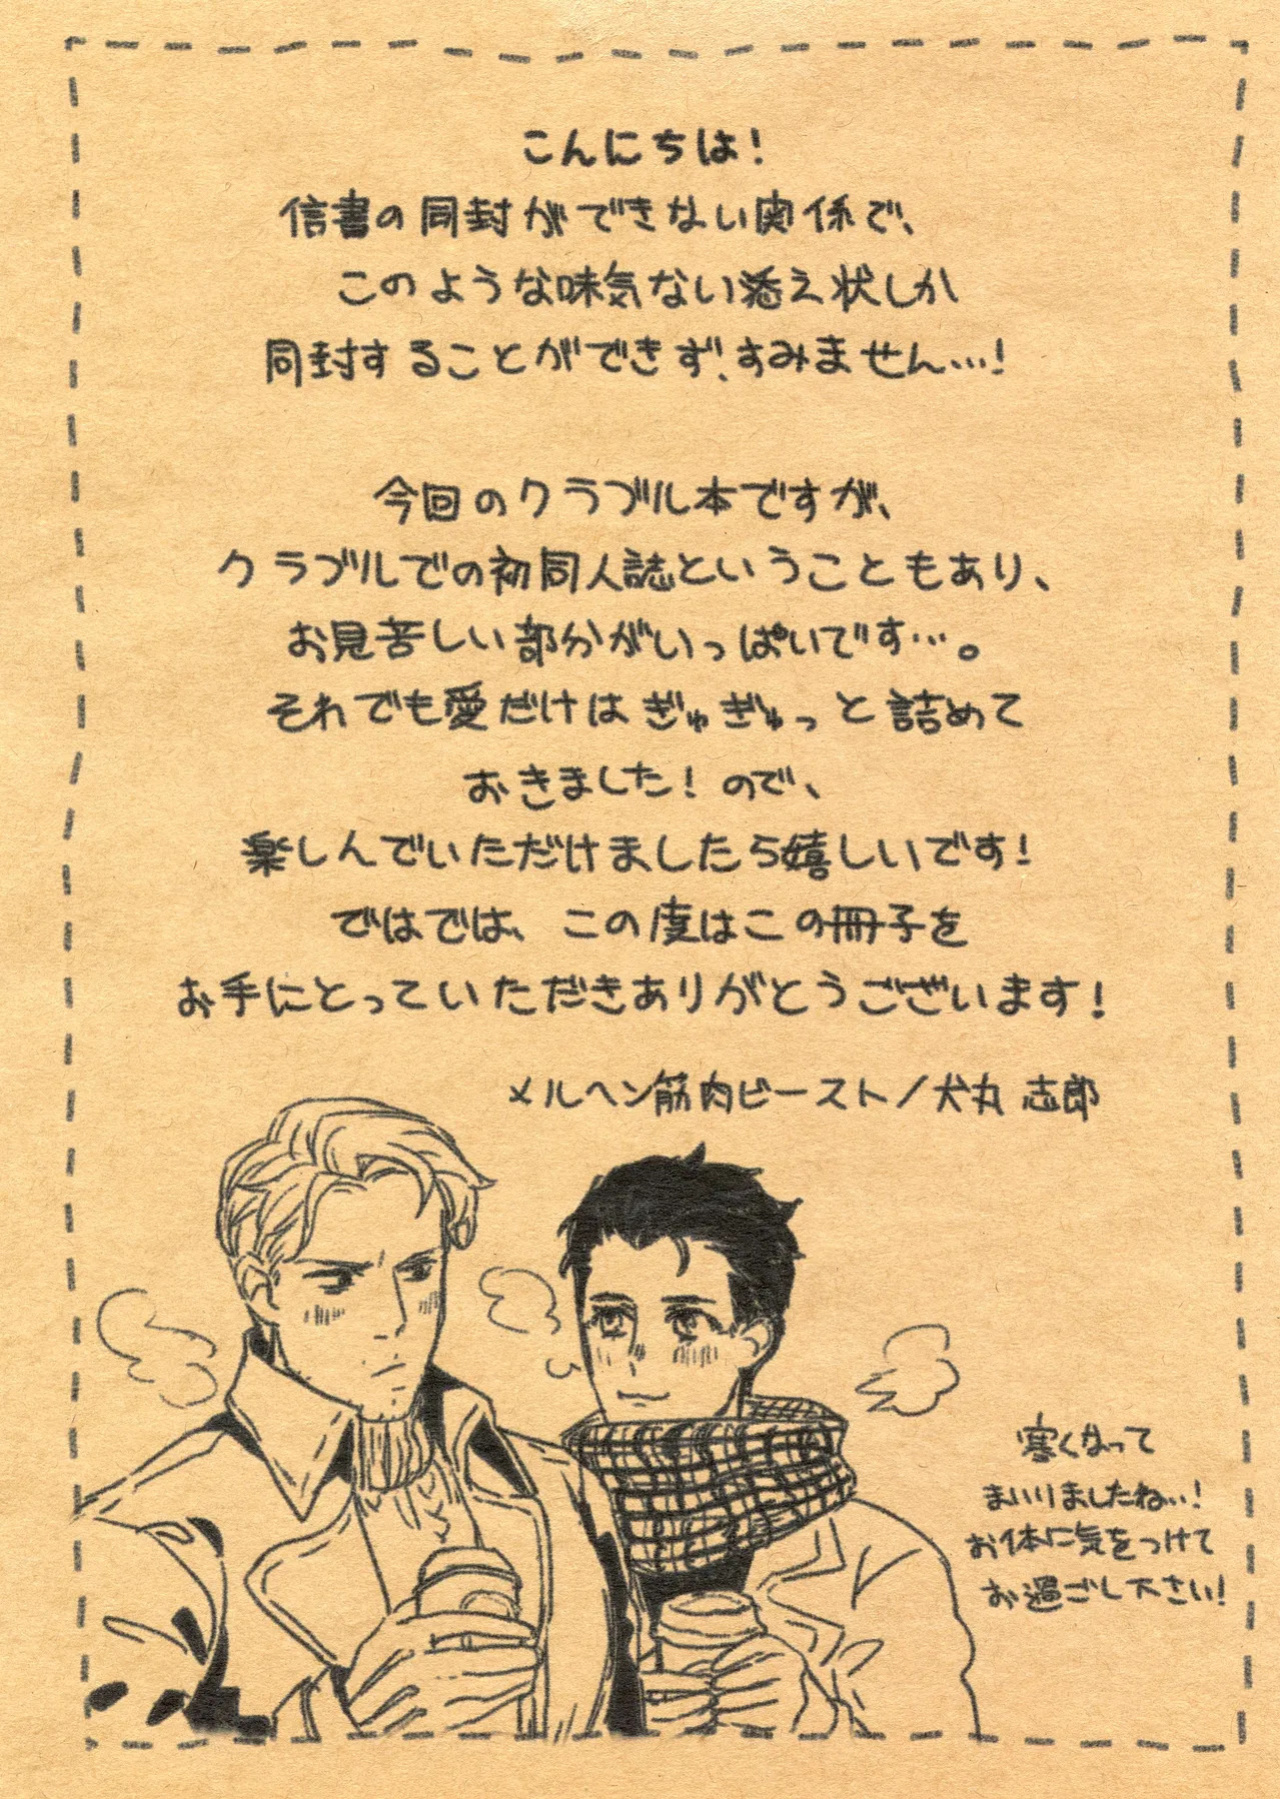 こんにちは!
信書の同封ができない関係で、
このような味気ない添え状しか
同封することができず、すみません…!
今回のクラブル本ですが、
クラブルでの初同人誌ということもあり、
お見苦しい部分がいっぱいです…。
それでも愛だけはぎゅぎゅっと詰めて
おきました!ので、
楽しんでいただけましたら嬉しいです!
ではでは、この度はこの冊子を
お手にとっていただきありがとうございます!
メルヘン筋肉ビースト/犬丸 志郎
寒くなって
まいりましたね…!
お体に気をつけて
お過ごし下さい!